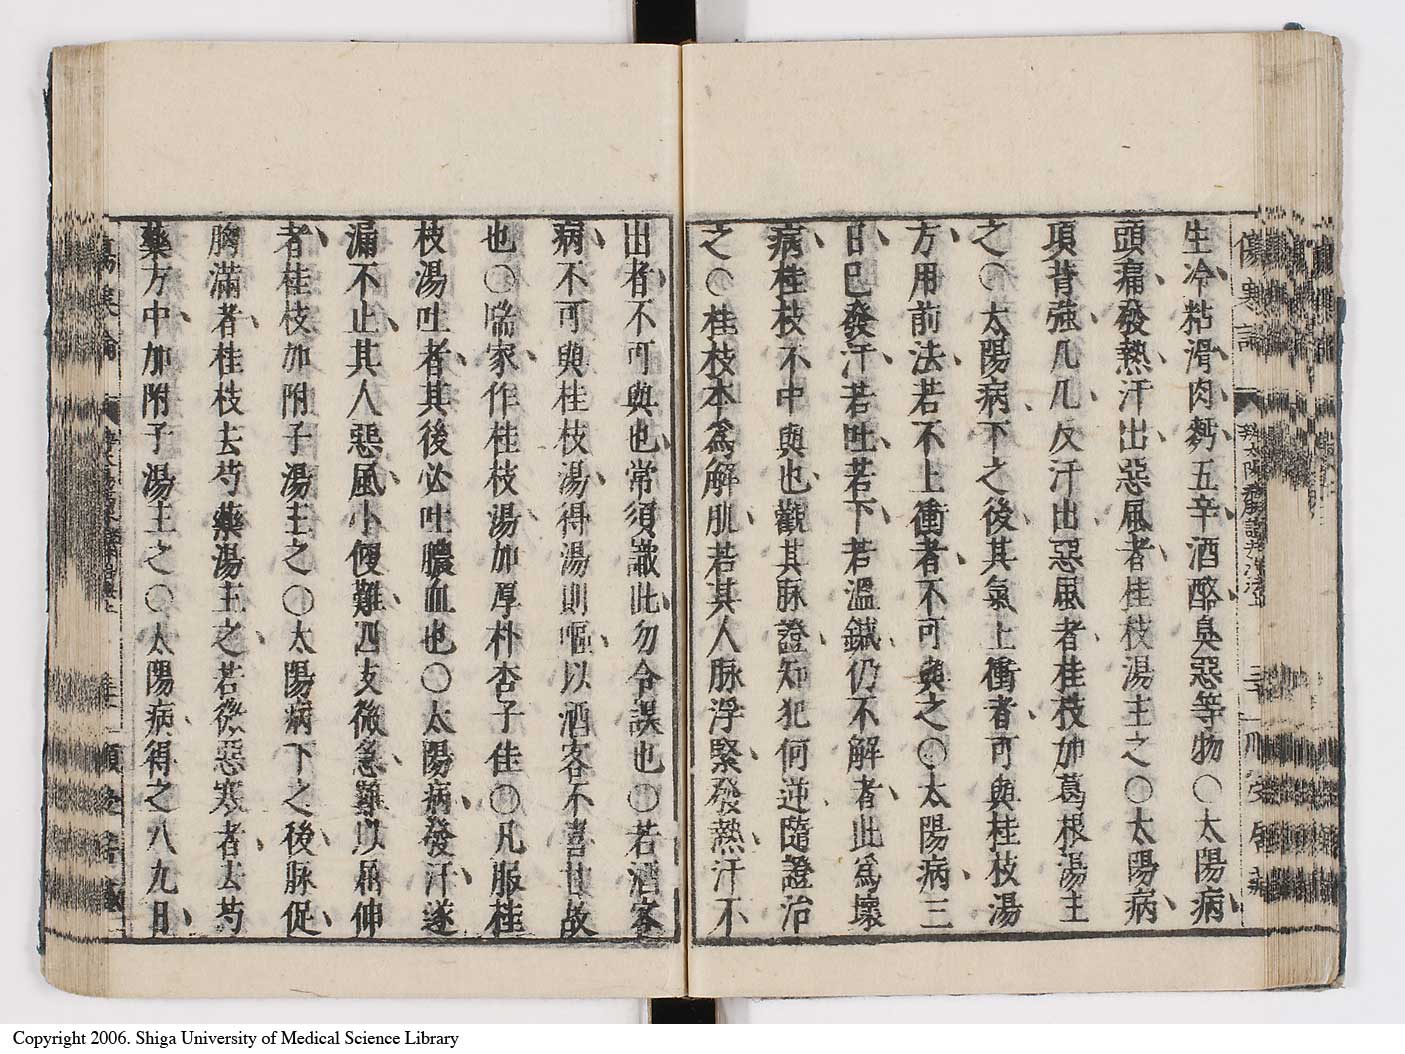 傷寒論
生冷粘滑肉麪五辛酒酪臭惡等物○太陽病
頭痛發熱汗出惡風者桂枝湯主之○太陽病
項背強几几反汗出惡風者桂枝加葛根湯主
之○太陽病下之後其氣上衝者可與桂枝湯
方用前法若不上衝者不可與之○太陽病三
日已發汗若吐若下若溫鍼仍不解者此爲壞
病桂枝不中與也觀其脉證知犯何逆隨證治
之○桂枝本爲解肌若其人脉浮緊發熱汗不
出者不可與也常須識此勿令誤也○若酒客
病不可與桂枝湯得湯則嘔以酒客不喜甘故
也○喘家作桂枝湯加厚朴杏子佳○凡服桂
枝湯吐者其後必吐膿血也○太陽病發汗遂
漏不止其人惡風小便難四支微急難以屈伸
者桂枝加附子湯主之○太陽病下之後脉促
胸滿者桂枝去芍藥湯主之若微惡寒者去芍
藥方中加附子湯主之○太陽病得之八九日
Copyright 2006. Shiga University of Medical Science Library